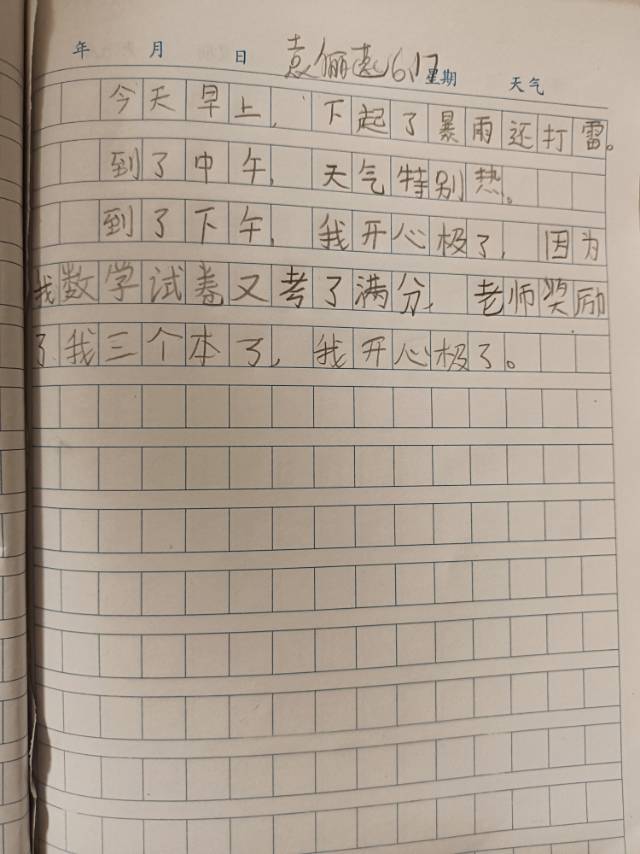 年 月 日 袁俪 6.17 星期 天气
今天早上，下起了暴雨还打雷。
到了中午，天气特别热。
到了下午，我开心极了，因为
我数学试卷又考了满分，老师奖励
了我三个本了，我开心极了。